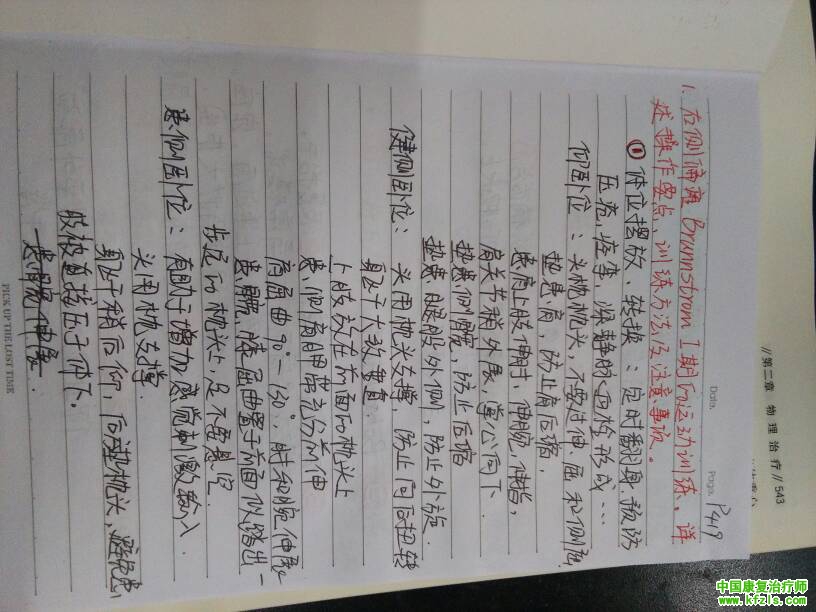 Date.
Page. P419
1. 右侧偏瘫 Brunnstrom I期的运动训练，详
述操作要点、训练方法及注意事项。
① 体位摆放、转换：定时翻身，预防
压疮，痉挛，深静脉血栓形成…
仰卧位：头枕枕头，不要过伸、屈和侧屈
垫患肩，防止肩后缩，
患肩上肢伸肘，伸腕，伸指，
肩关节稍外展，掌心向下
垫患侧髋，防止后缩
垫患腿股外侧，防止外旋．
健侧卧位：头用枕头支撑，防止向后扭转
躯干大致垂直
上肢放在前面的枕头上
患侧肩胛带充分前伸
肩屈曲90°－130°，肘和腕伸展
患髋，膝屈曲置于前面似踏出一
步远的枕头上，足不要悬空
患侧卧位：有助于增加感觉刺激输入．
头用枕支撑．
躯干稍后仰，后垫枕头，避免患
肢被直接压于体下。
患腕伸展．
PICK UP THE LOST TIME
//第二章 物理治疗//543
中国康复治疗师
www.kfzls.com